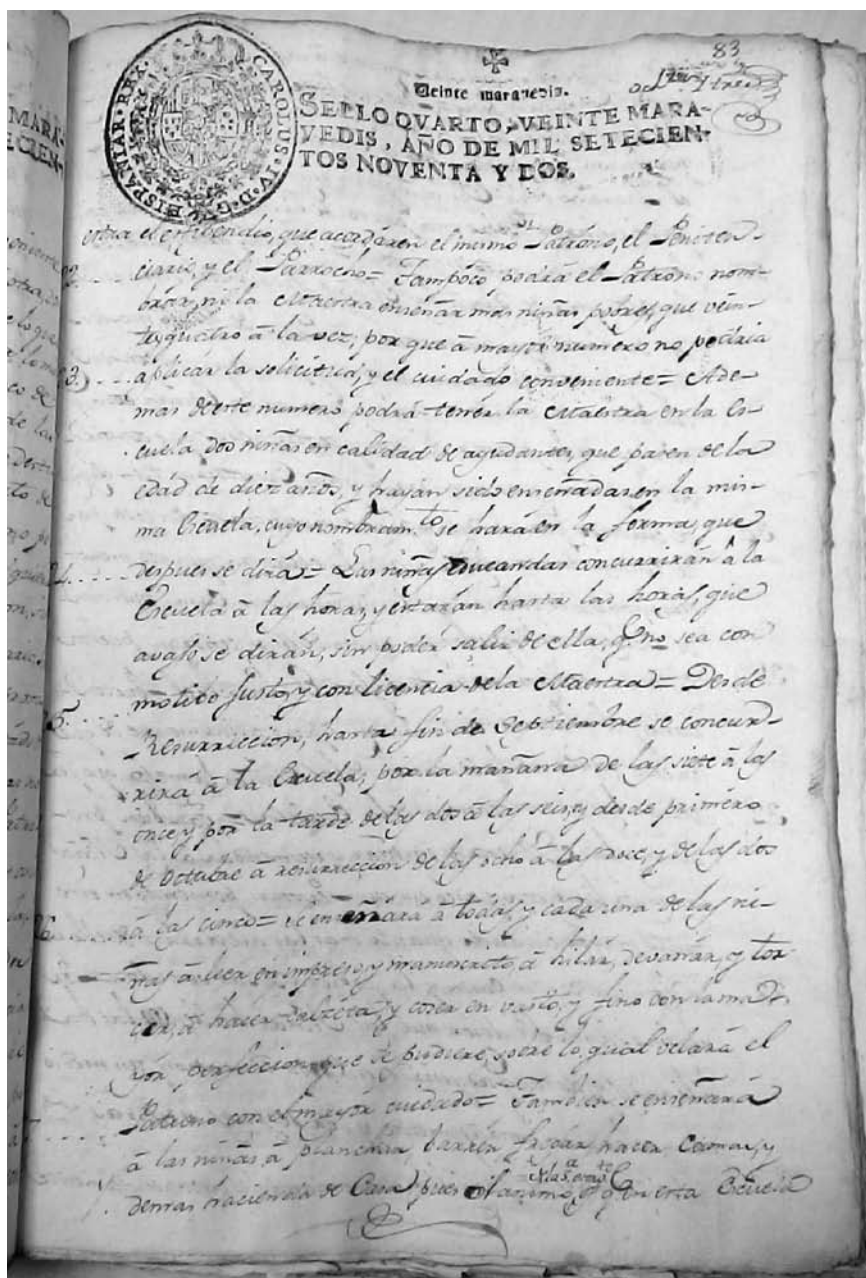 83
ochenta y tres
HISPANIAR. REX. CAROLUS. IV. D. G.
Veinte maravedis.
SELLO QVARTO, VEINTE MARA-
VEDIS, AÑO DE MIL SETECIEN-
TOS NOVENTA Y DOS.
estra el estipendio, que acordaren el mismo Patrono, el Peniten-
ciario, y el Parrocho= Tampoco podrá el Patrono nom-
brar, ni la Maestra enseñar mas niñas pobres, que vein-
te y quatro à la vez, por que à mayor numero no podria
3. aplicar la solicitud, y el cuidado conveniente= Ade-
mas de este numero podrá tener la Maestra en la Es-
cuela dos niñas en calidad de ayudantes, que pasen de la
edad de diez años, y hayan sido enseñadas en la mis-
ma Escuela, cuyo nombram.to se hará en la forma, que
4. despues se dirá= Las niñas educandas concurrirán à la
Escuela à las horas, y estarán hasta las horas, que
avajo se dirán, sin poder salir de ella, q.e no sea con
motivo justo, y con licencia de la Maestra= Desde
5. Resurreccion, hasta fin de Septiembre se concur-
rirá à la Escuela, por la mañana de las siete à las
once y por la tarde de las dos à las seis, y desde primero
de Octubre à resurreccion de las ocho à las doce, y de las dos
6. à las cinco= se enseñara à todas, y cada una de las ni-
ñas à leer en impreso, y manuscrito, à hilar, devanar, y tor
cer, à hacer calzeta, y coser en vasto, y fino con la ma-
yor perfeccion, que se pudiere, sobre lo qual velará el
Patrono con el mayor cuidado= Tambien se enseñará
à las niñas à planchar, barrer, fregar, hacer Camas, y
demas hacienda de Casa, pues el animo, es q.e en esta Escuela